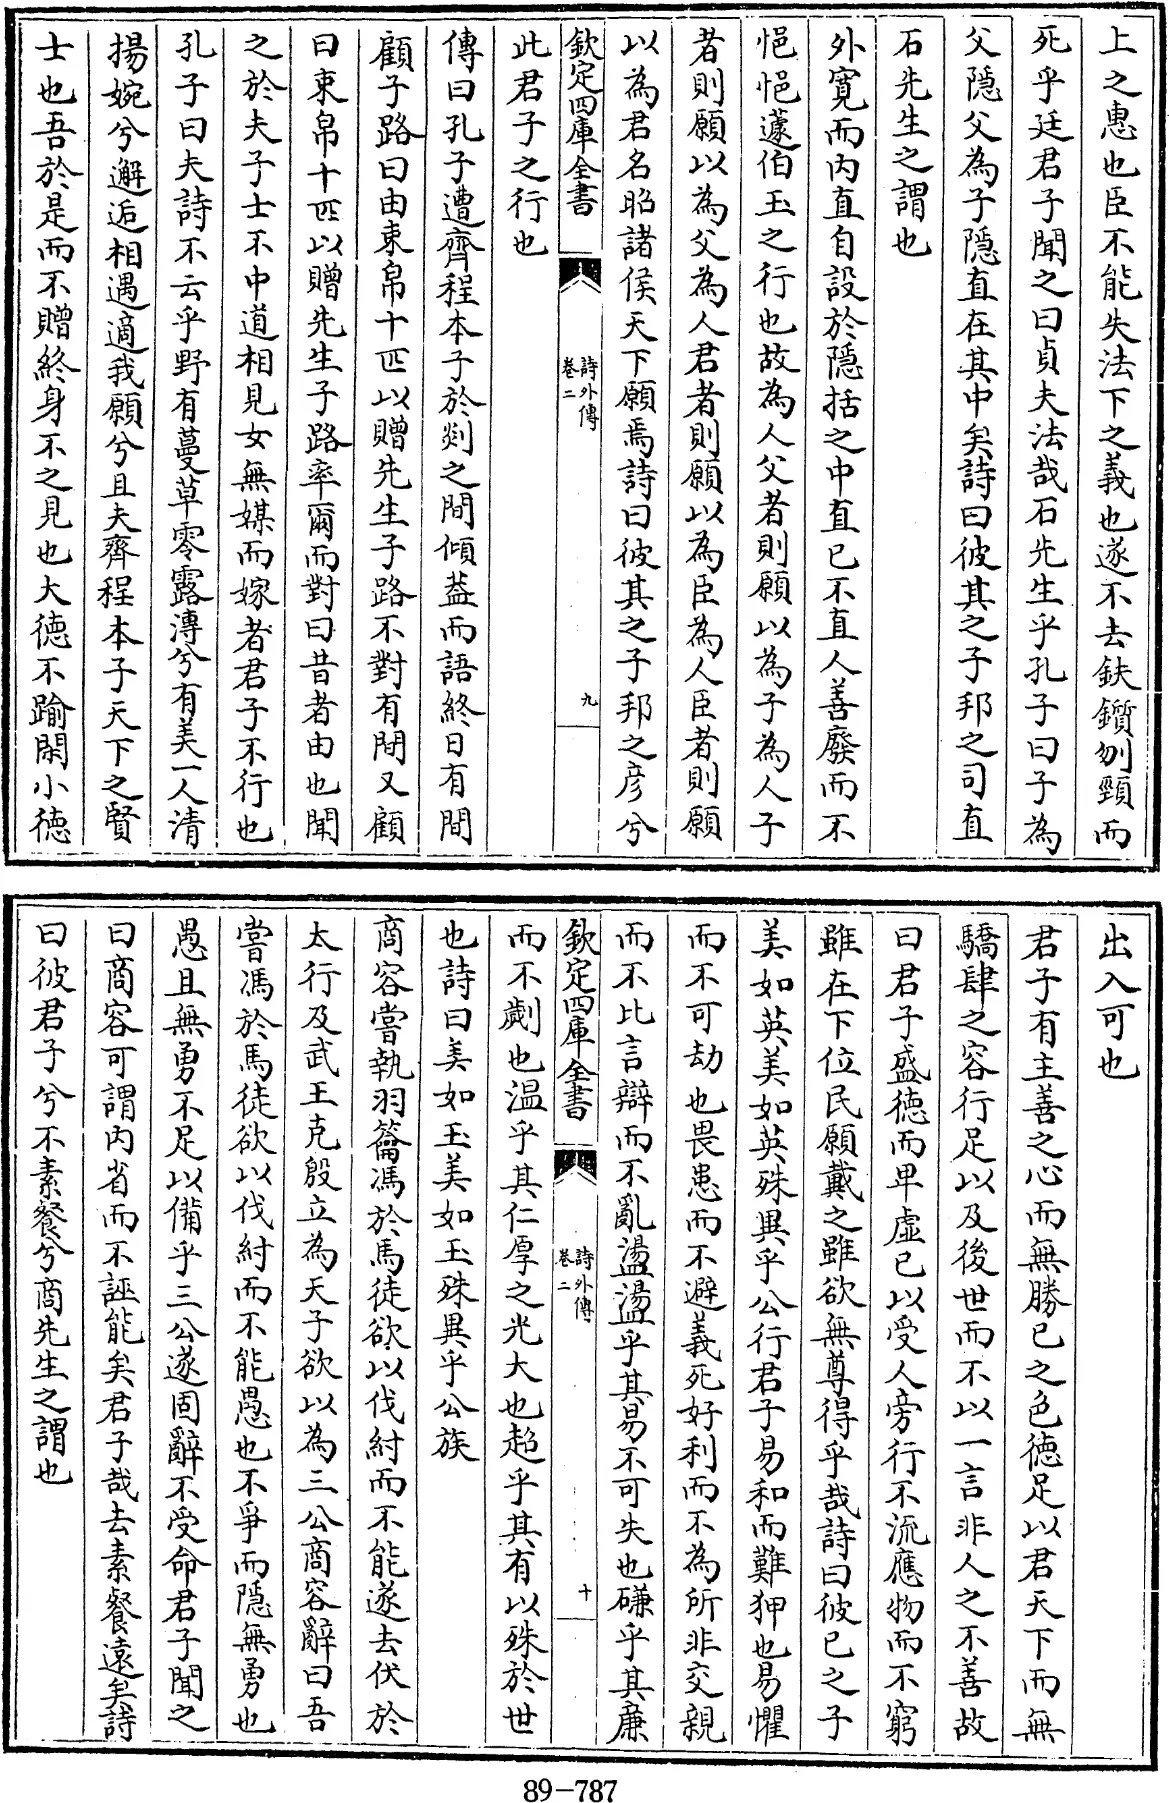 上之惠也臣不能失法下之義也遂不去鈇鑕刎頸而
死乎廷君子聞之曰貞夫法哉石先生乎孔子曰子為
父隱父為子隱直在其中矣詩曰彼其之子邦之司直
石先生之謂也
外寛而内直自設於隱括之中直己不直人善廢而不
悒悒蘧伯玉之行也故為人父者則願以為子為人子
者則願以為父為人君者則願以為臣為人臣者則願
以為君名昭諸侯天下願焉詩曰彼其之子邦之彦兮
欽定四庫全書
詩外傳
卷二
九
此君子之行也
傳曰孔子遭齊程本子於剡之間傾蓋而語終日有間
顧子路曰由束帛十匹以贈先生子路不對有間又顧
曰束帛十匹以贈先生子路率爾而對曰昔者由也聞
之於夫子士不中道相見女無媒而嫁者君子不行也
孔子曰夫詩不云乎野有蔓草零露漙兮有美一人清
揚婉兮邂逅相遇適我願兮且夫齊程本子天下之賢
士也吾於是而不贈終身不之見也大德不踰閑小德
出入可也
君子有主善之心而無勝己之色德足以君天下而無
驕肆之容行足以及後世而不以一言非人之不善故
曰君子盛德而卑虚己以受人旁行不流應物而不窮
雖在下位民願戴之雖欲無尊得乎哉詩曰彼己之子
美如英美如英殊異乎公行君子易和而難狎也易懼
而不可劫也畏患而不避義死好利而不為所非交親
而不比言辯而不亂盪盪乎其易不可失也磏乎其廉
欽定四庫全書
詩外傳
卷二
十
而不劌也温乎其仁厚之光大也超乎其有以殊於世
也詩曰美如玉美如玉殊異乎公族
商容嘗執羽籥馮於馬徒欲以伐紂而不能遂去伏於
太行及武王克殷立為天子欲以為三公商容辭曰吾
嘗馮於馬徒欲以伐紂而不能愚也不爭而隱無勇也
愚且無勇不足以備乎三公遂固辭不受命君子聞之
曰商容可謂内省而不誣能矣君子哉去素餐逺矣詩
曰彼君子兮不素餐兮商先生之謂也
89-787